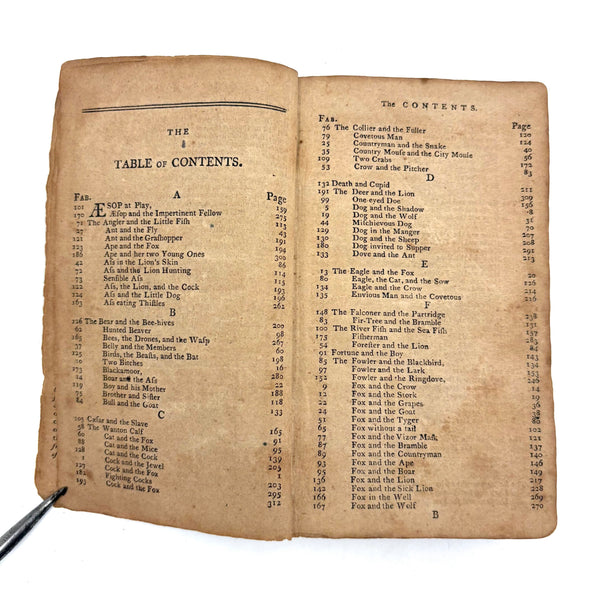 THE
TABLE OF CONTENTS.
FAB. A Page
101 ÆSOP at Play, 159
170 Æſop and the Impertinent Fellow 275
71 The Angler and the Little Fiſh 113
27 Ant and the Fly 43
121 Ant and the Graſhopper 191
123 Ape and the Fox 194
186 Ape and her two Young Ones 300
42 Aſs in the Lion's Skin 86
72 Aſs and the Lion Hunting 114
73 Senſible Aſs 115
122 Aſs, the Lion, and the Cock 193
124 Aſs and the Little Dog 196
163 Aſs eating Thiſtles 262
B
126 The Bear and the Bee-hives 200
62 Hunted Beaver 98
165 Bees, the Drones, and the Waſp 267
37 Belly and the Members 60
125 Birds, the Beaſts, and the Bat 198
10 Two Bitches 16
173 Blackamoor, 280
14 Boar and the Aſs 22
119 Boy and his Mother 188
75 Brother and Siſter 118
84 Bull and the Goat 133
C
Cæſar and the Slave
58 The Wanton Calf 165
60 Cat and the Fox 91
88 Cat and the Mice 95
128 Cat and the Cock 139
1 Cock and the Jewel 203
127 Cock and the Fox
182 Fighting Cocks 203
193 Cock and the Fox 295
312
The CONTENTS.
FAB. Page
76 The Collier and the Fuller 120
79 Covetous Man 124
25 Countryman and the Snake 40
35 Country Mouſe and the City Mouſe 56
109 Two Crabs 172
53 Crow and the Pitcher 83
D
132 Death and Cupid 211
191 The Deer and the Lion 309
99 One-eyed Doe 156
5 Dog and the Shadow 8
19 Dog and the Wolf 31
44 Miſchievous Dog 70
129 Dog in the Manger 207
130 Dog and the Sheep 208
180 Dog invited to Supper 291
133 Dove and the Ant 213
E
13 The Eagle and the Fox 20
80 Eagle, the Cat, and the Sow 126
134 Eagle and the Crow 214
135 Envious Man and the Covetous 216
F
148 The Falconer and the Partridge 238
83 Fir-Tree and the Bramble 131
100 The River Fiſh and the Sea Fiſh 157
175 Fiſherman 283
54 Foreſter and the Lion 84
91 Fortune and the Boy 144
85 The Fowler and the Blackbird, 134
97 Fowler and the Lark 153
152 Fowler and the Ringdove, 246
9 Fox and the Crow 14
12 Fox and the Stork 19
22 Fox and the Grapes 36
24 Fox and the Goat 38
51 Fox and the Tyger 80
65 Fox without a tail 102
77 Fox and the Vizor Maſk 121
87 Fox and the Bramble 137
89 Fox and the Countryman 140
93 Fox and the Ape 146
95 Fox and the Boar 149
136 Fox and the Lion 217
142 Fox and the Sick Lion 228
166 Fox in the Well 269
167 Fox and the Wolf 270
B